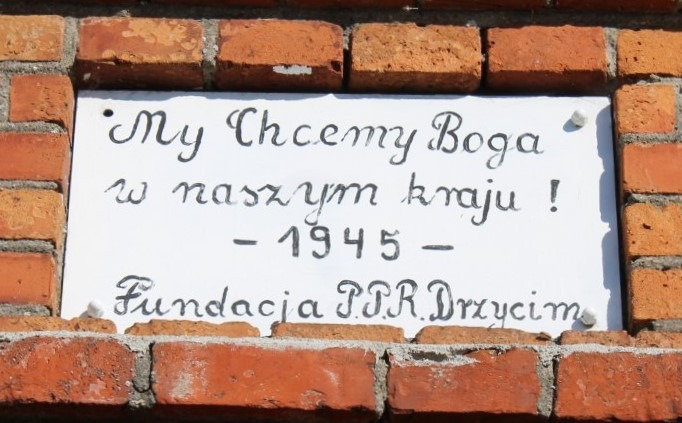 My Chcemy Boga
w naszym kraju !
- 1945 -
Fundacja P.P.R. Drzycim